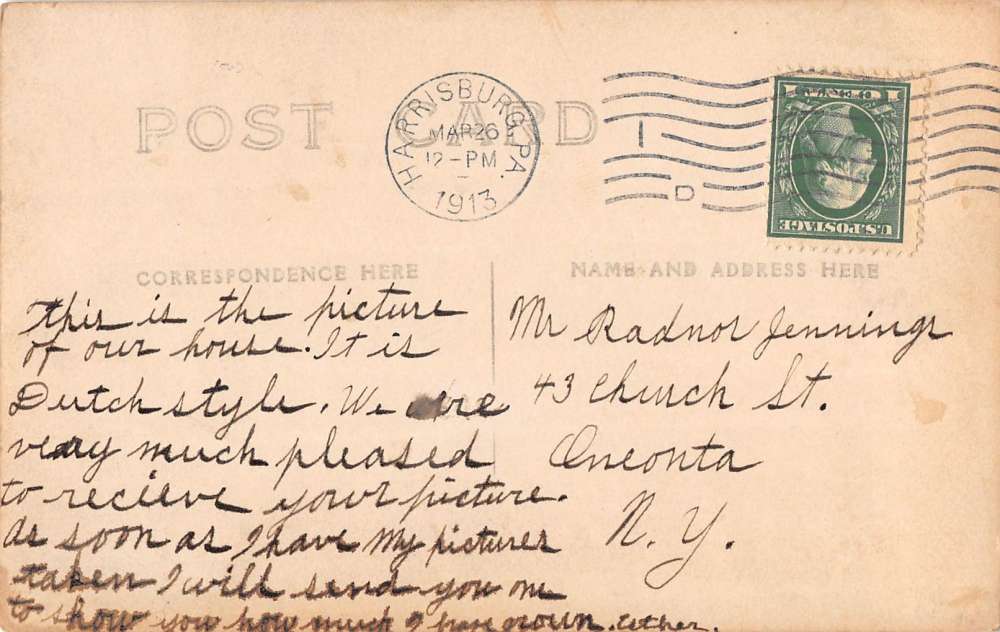 POST CARD
HARRISBURG, PA.
MAR 26
12-PM
1913
I
D
U.S. POSTAGE
CORRESPONDENCE HERE
this is the picture
of our house. It is
Dutch style. We are
very much pleased
to recieve your picture.
As soon as I have my pictures
taken I will send you one
to show you how much I have grown.
NAME AND ADDRESS HERE
Mr Radnor Jennings
43 Church St.
Oneonta
N. Y.